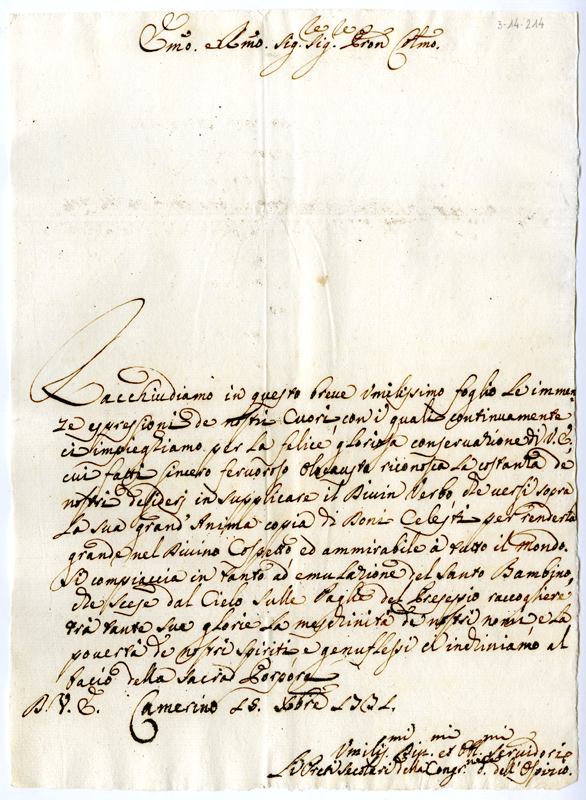 3-14-214
Emo. e Rmo. Sig.re Sig.re Pron Colmo.
Racchiudiamo in questo breve Umilissimo foglio le immen
ze espressioni de nostri Cuori con i quali continuamente
ci impieghiamo per la felice gloriosa conservazione di V. E.
cui fatti sincero fervoroso Olocausto riconosca la costanza de
nostri desideri in supplicare il Divin Verbo che versi sopra
la sua grand'Anima copia di Boni Celesti per renderla
grande nel Divino Cospetto ed ammirabile à tutto il mondo.
Si compiaccia in tanto ad emulazione del Santo Bambino,
che scese dal Cielo sulle Paglie del Presepio raccogliere
trà tante sue glorie la meschinità de nostri nomi, e la
povertà de nostri spiriti e genuflessi c'inchiniamo al
bacio della Sacra Porpora
D. V. E. Camerino 15. Xbre 1731.
Umiliss.mi Div.mi et Obl.mi Servidori
Li Preti Secolari della Congr.ne d. dell'Ospizio.